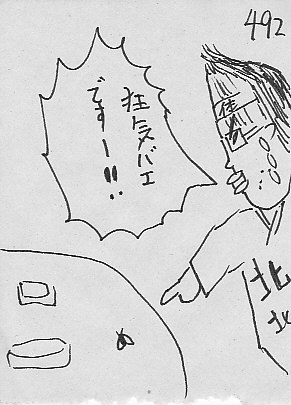 492
狂気バエ
ですー!!
め
北
北